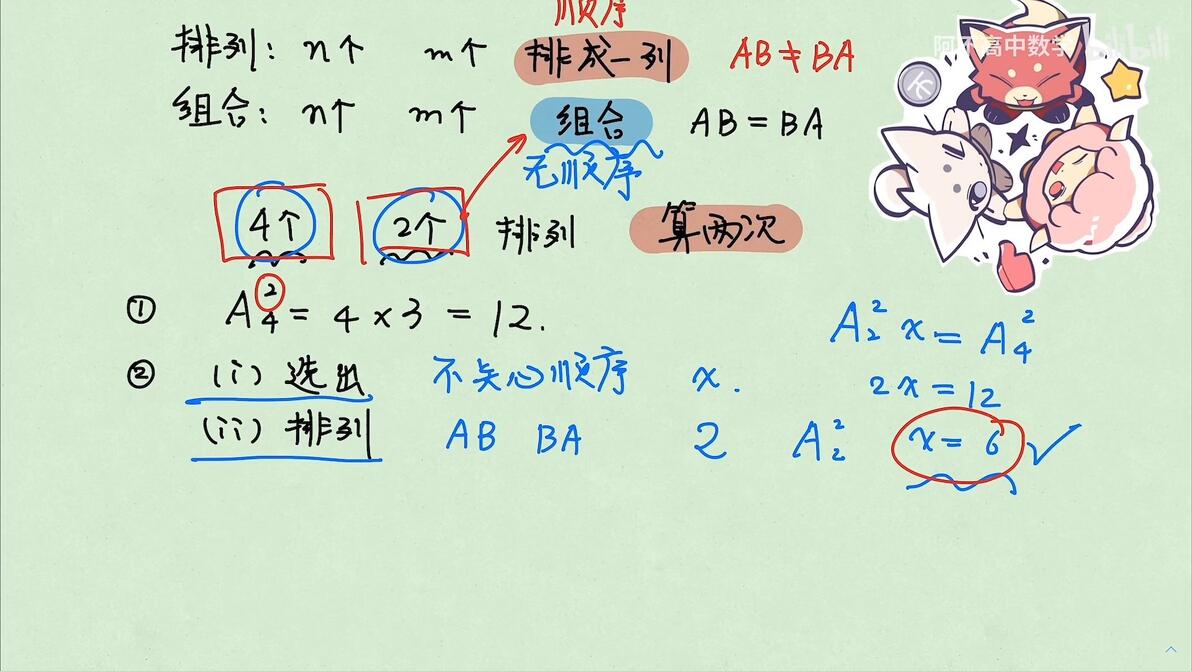 顺序
排列： n个 m个 排成一列 AB ≠ BA
组合： n个 m个 组合 AB = BA
无顺序
4个 2个 排列 算两次
① A₄² = 4 × 3 = 12.
A₂² x = A₄²
② (i) 选出 不关心顺序 x.
2x = 12
(ii) 排列 AB BA 2 A₂² x = 6 ✓
高中数学 bilibili